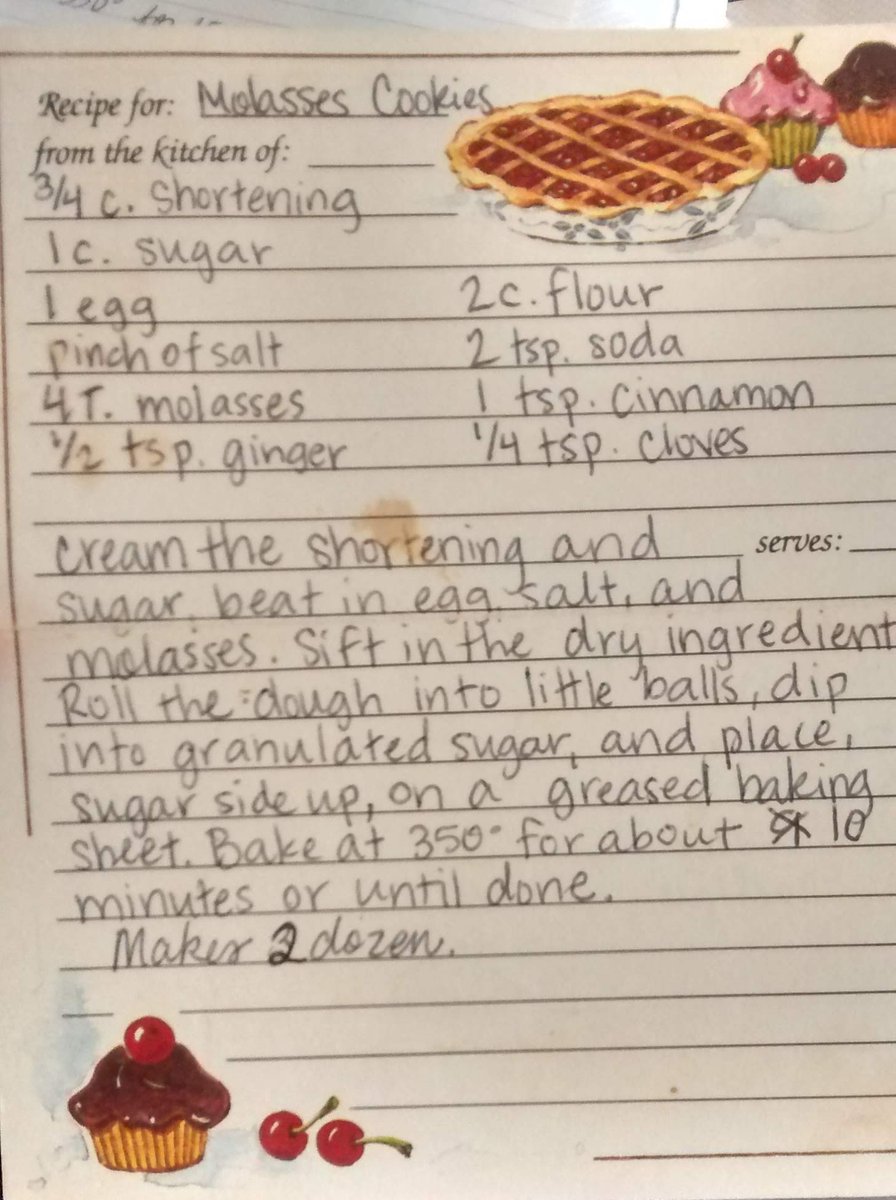 Recipe for: Molasses Cookies
from the kitchen of:
3/4 c. Shortening
1 c. sugar
1 egg
pinch of salt
4 T. molasses
1/2 tsp. ginger
2 c. flour
2 tsp. soda
1 tsp. cinnamon
1/4 tsp. cloves
serves:
cream the shortening and
sugar, beat in egg, salt, and
molasses. Sift in the dry ingredient
Roll the dough into little balls, dip
into granulated sugar, and place,
sugar side up, on a greased baking
sheet. Bake at 350° for about 10
minutes or until done.
Makes 2 dozen.